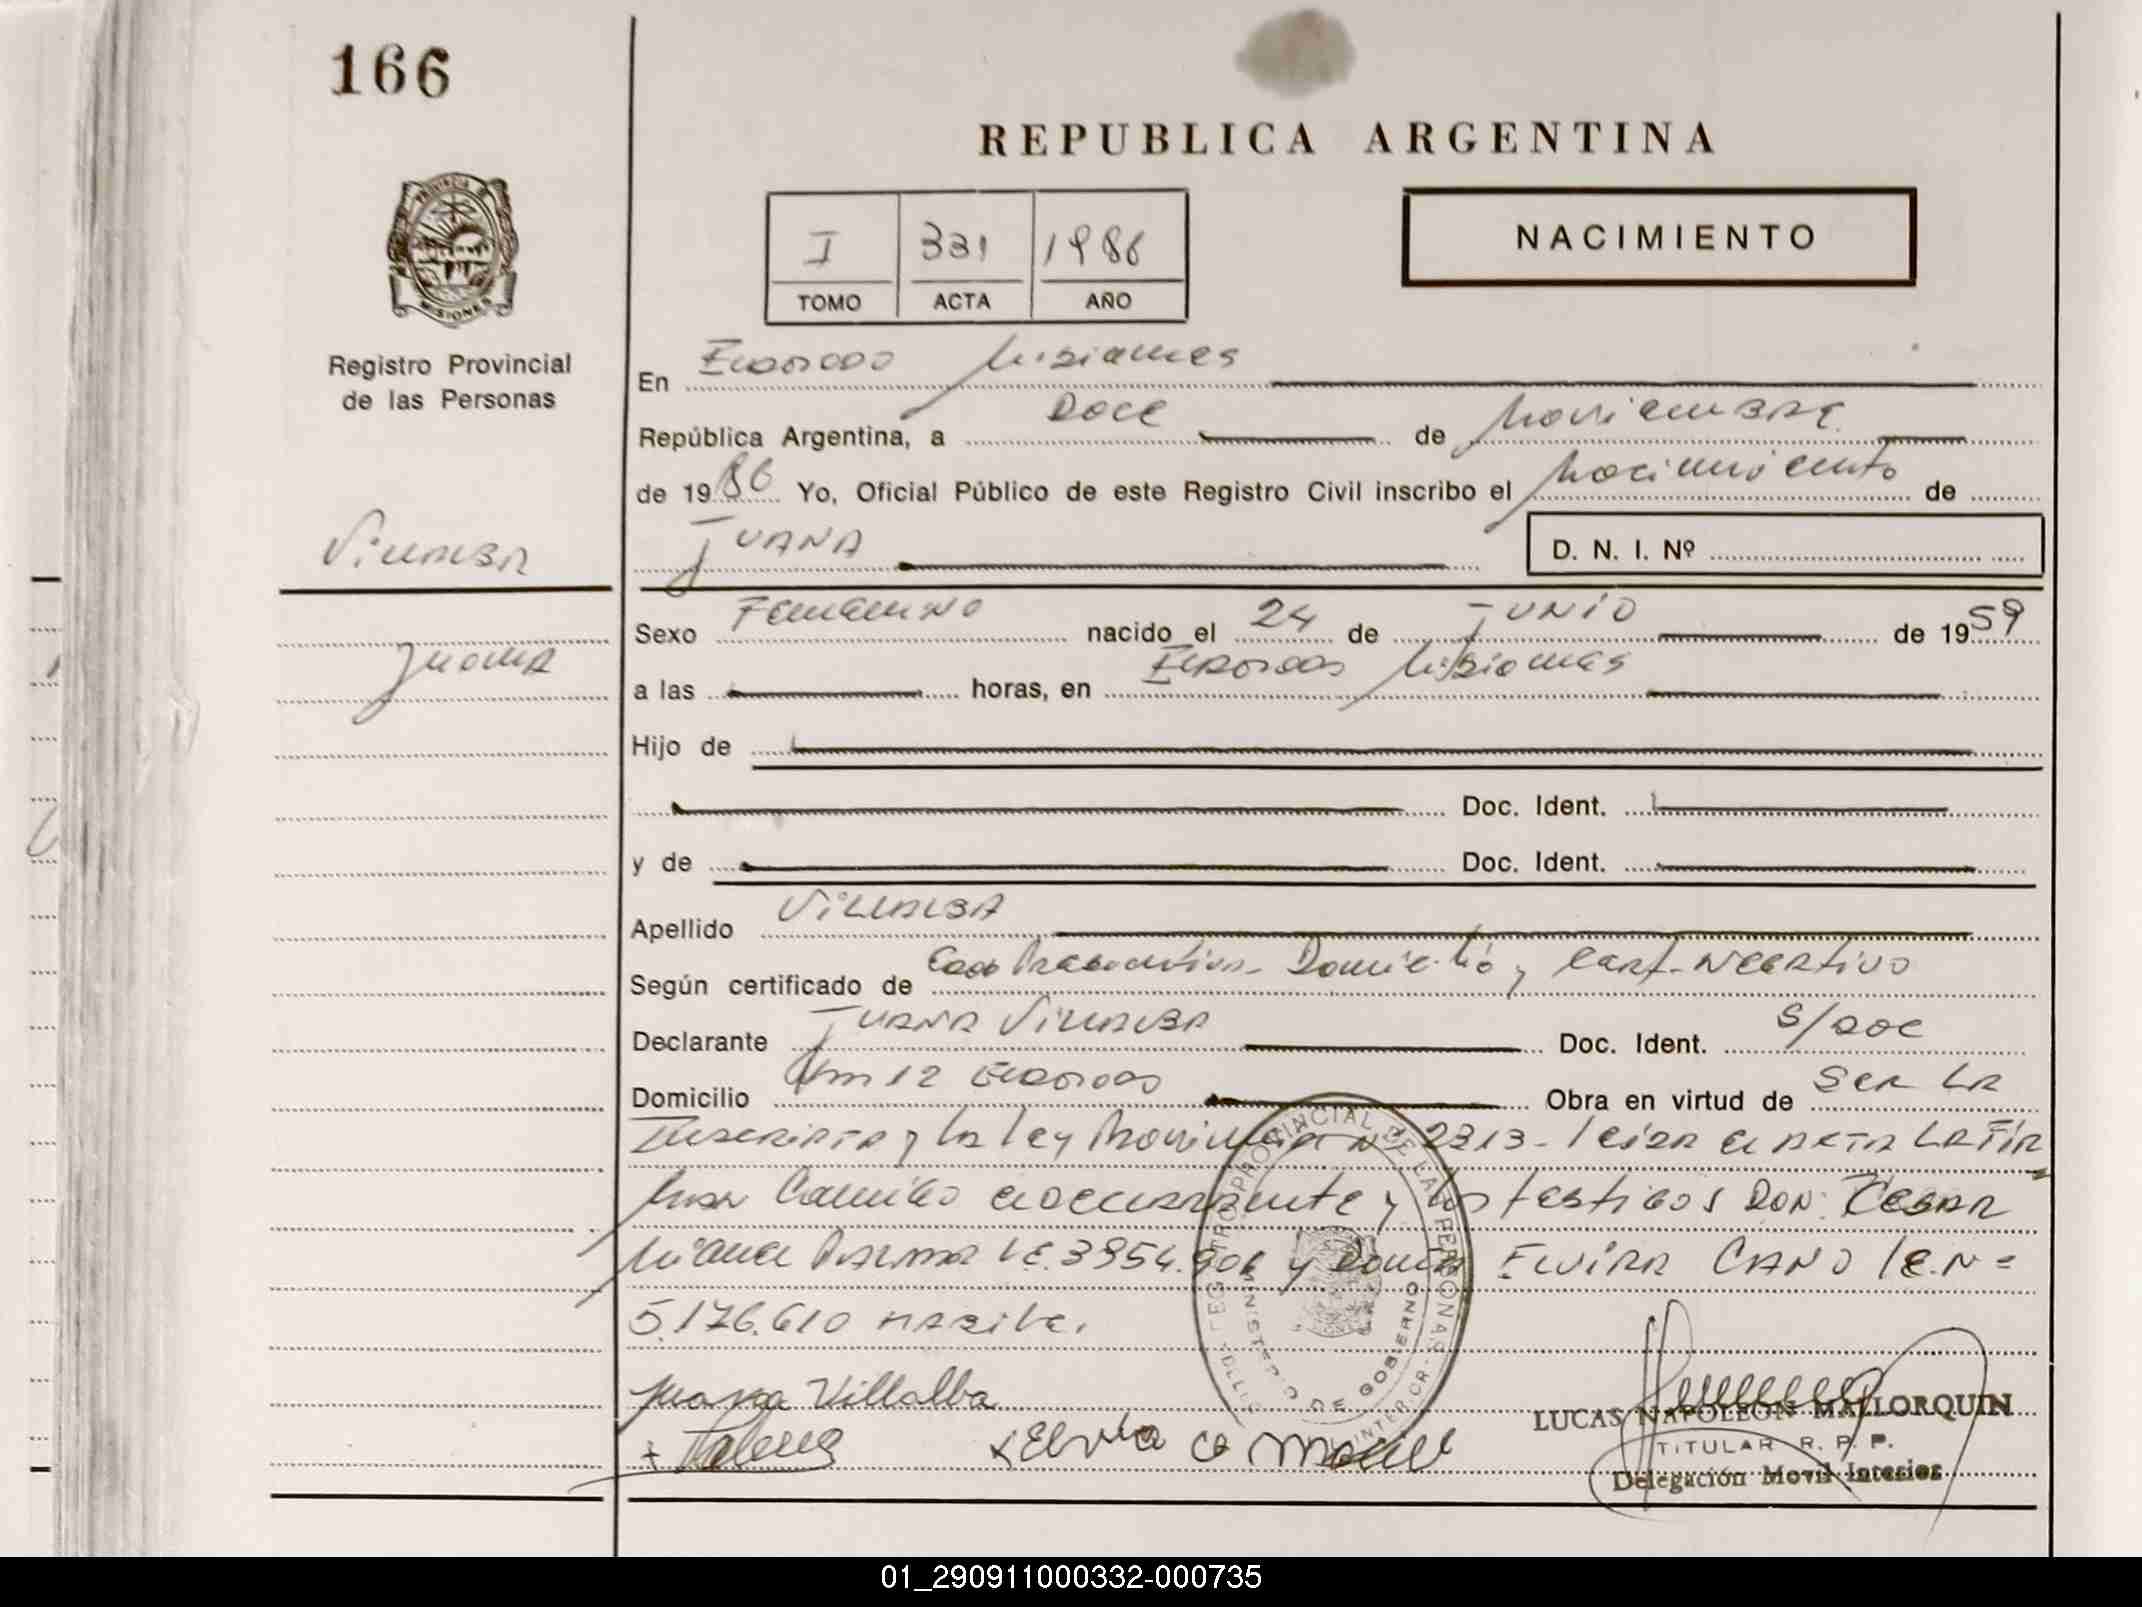 166
REPUBLICA ARGENTINA
PROVINCIA DE
MISIONES
I 331 1986
TOMO ACTA AÑO
NACIMIENTO
Registro Provincial
de las Personas
En Eldorado Misiones
República Argentina, a Doce de Noviembre
de 1986 Yo, Oficial Público de este Registro Civil inscribo el Nacimiento de
Villalba
Juana
D. N. I. Nº
Juana
Sexo Femenino nacido el 24 de Junio de 1959
a las horas, en Eldorado Misiones
Hijo de
Doc. Ident.
y de Doc. Ident.
Apellido Villalba
Según certificado de y Cert. Negativo
Declarante Juana Villalba Doc. Ident. S/Doc
Domicilio Km 12 Eldorado Obra en virtud de Ser la
Inscripta y la ley Provincial Nº 2313 - leida el acta la fir
man Conmigo el declarante y los testigos Don: Cesar
Miguel L.E. 3954.906 y Doña Elvira Cano l.e. Nº
5.176.610
Juana Villalba
REGISTRO PROVINCIAL DE LAS PERSONAS
MINISTERIO DE GOBIERNO
LUCAS NAPOLEON MALLORQUIN
TITULAR R. P. P.
Delegación Movil Interior
01_290911000332-000735